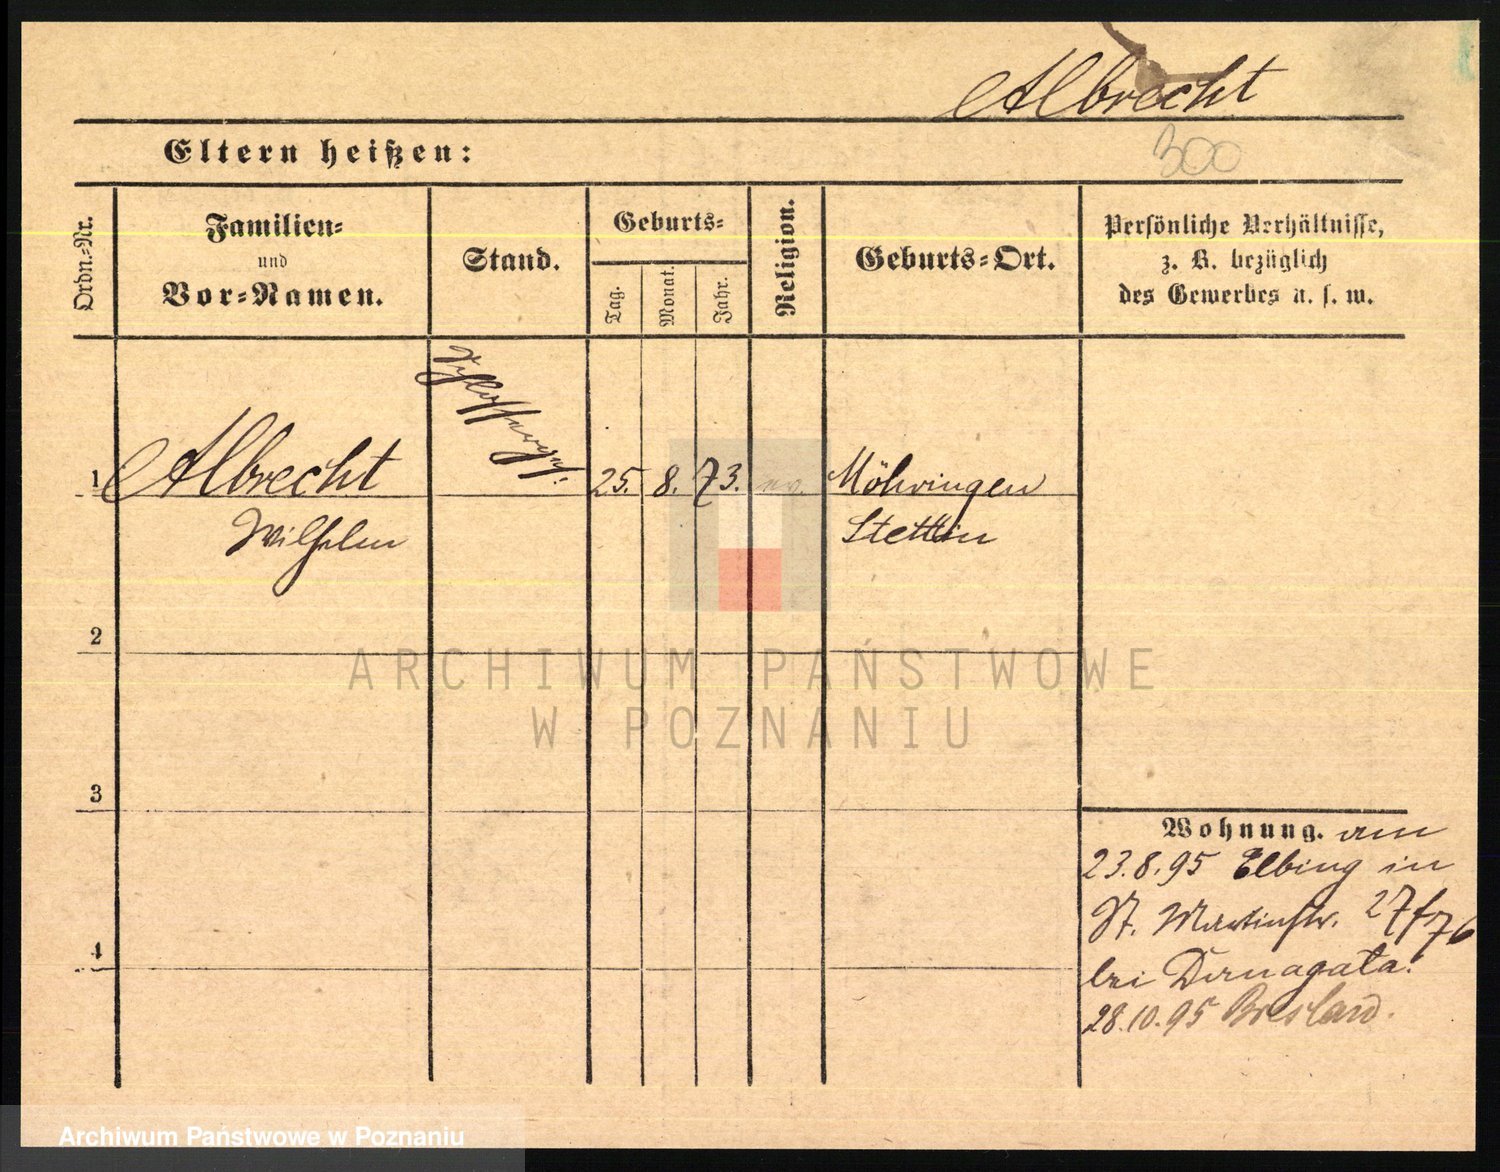 Albrecht
Eltern heißen:
300
Ordn.-Nr.
Familien-
und
Vor-Namen.
Stand.
Geburts-
Tag.
Monat.
Jahr.
Religion.
Geburts-Ort.
Persönliche Verhältnisse,
z. B. bezüglich
des Gewerbes u. s. w.
1 Albrecht Schlosserges. 25. 8. 73. ev. Möhringen
Wilhelm Stettin
2
ARCHIWUM PAŃSTWOWE
W POZNANIU
3
Wohnung. am
23.8.95 Elbing in
St. Martinstr. 27
4
bei
28.10.95 Breslau.
Archiwum Państwowe w Poznaniu